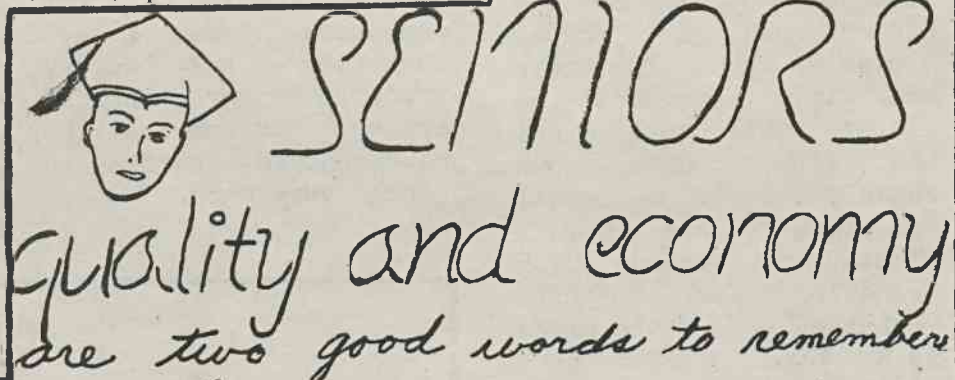 SENIORS
quality and economy
are two good words to remember